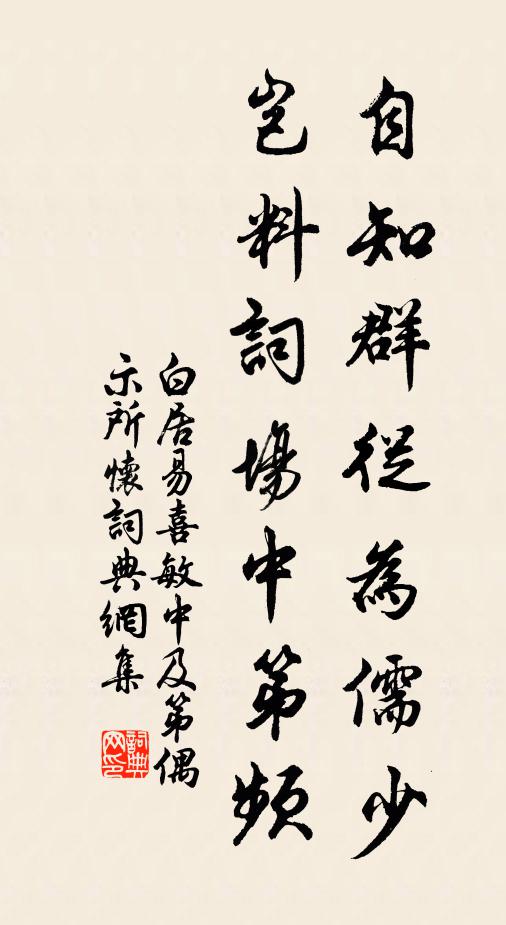 自知群從為儒少
豈料詞場中第頻
白居易喜敏中及第偶
示所懷詞典網集
詞典網印